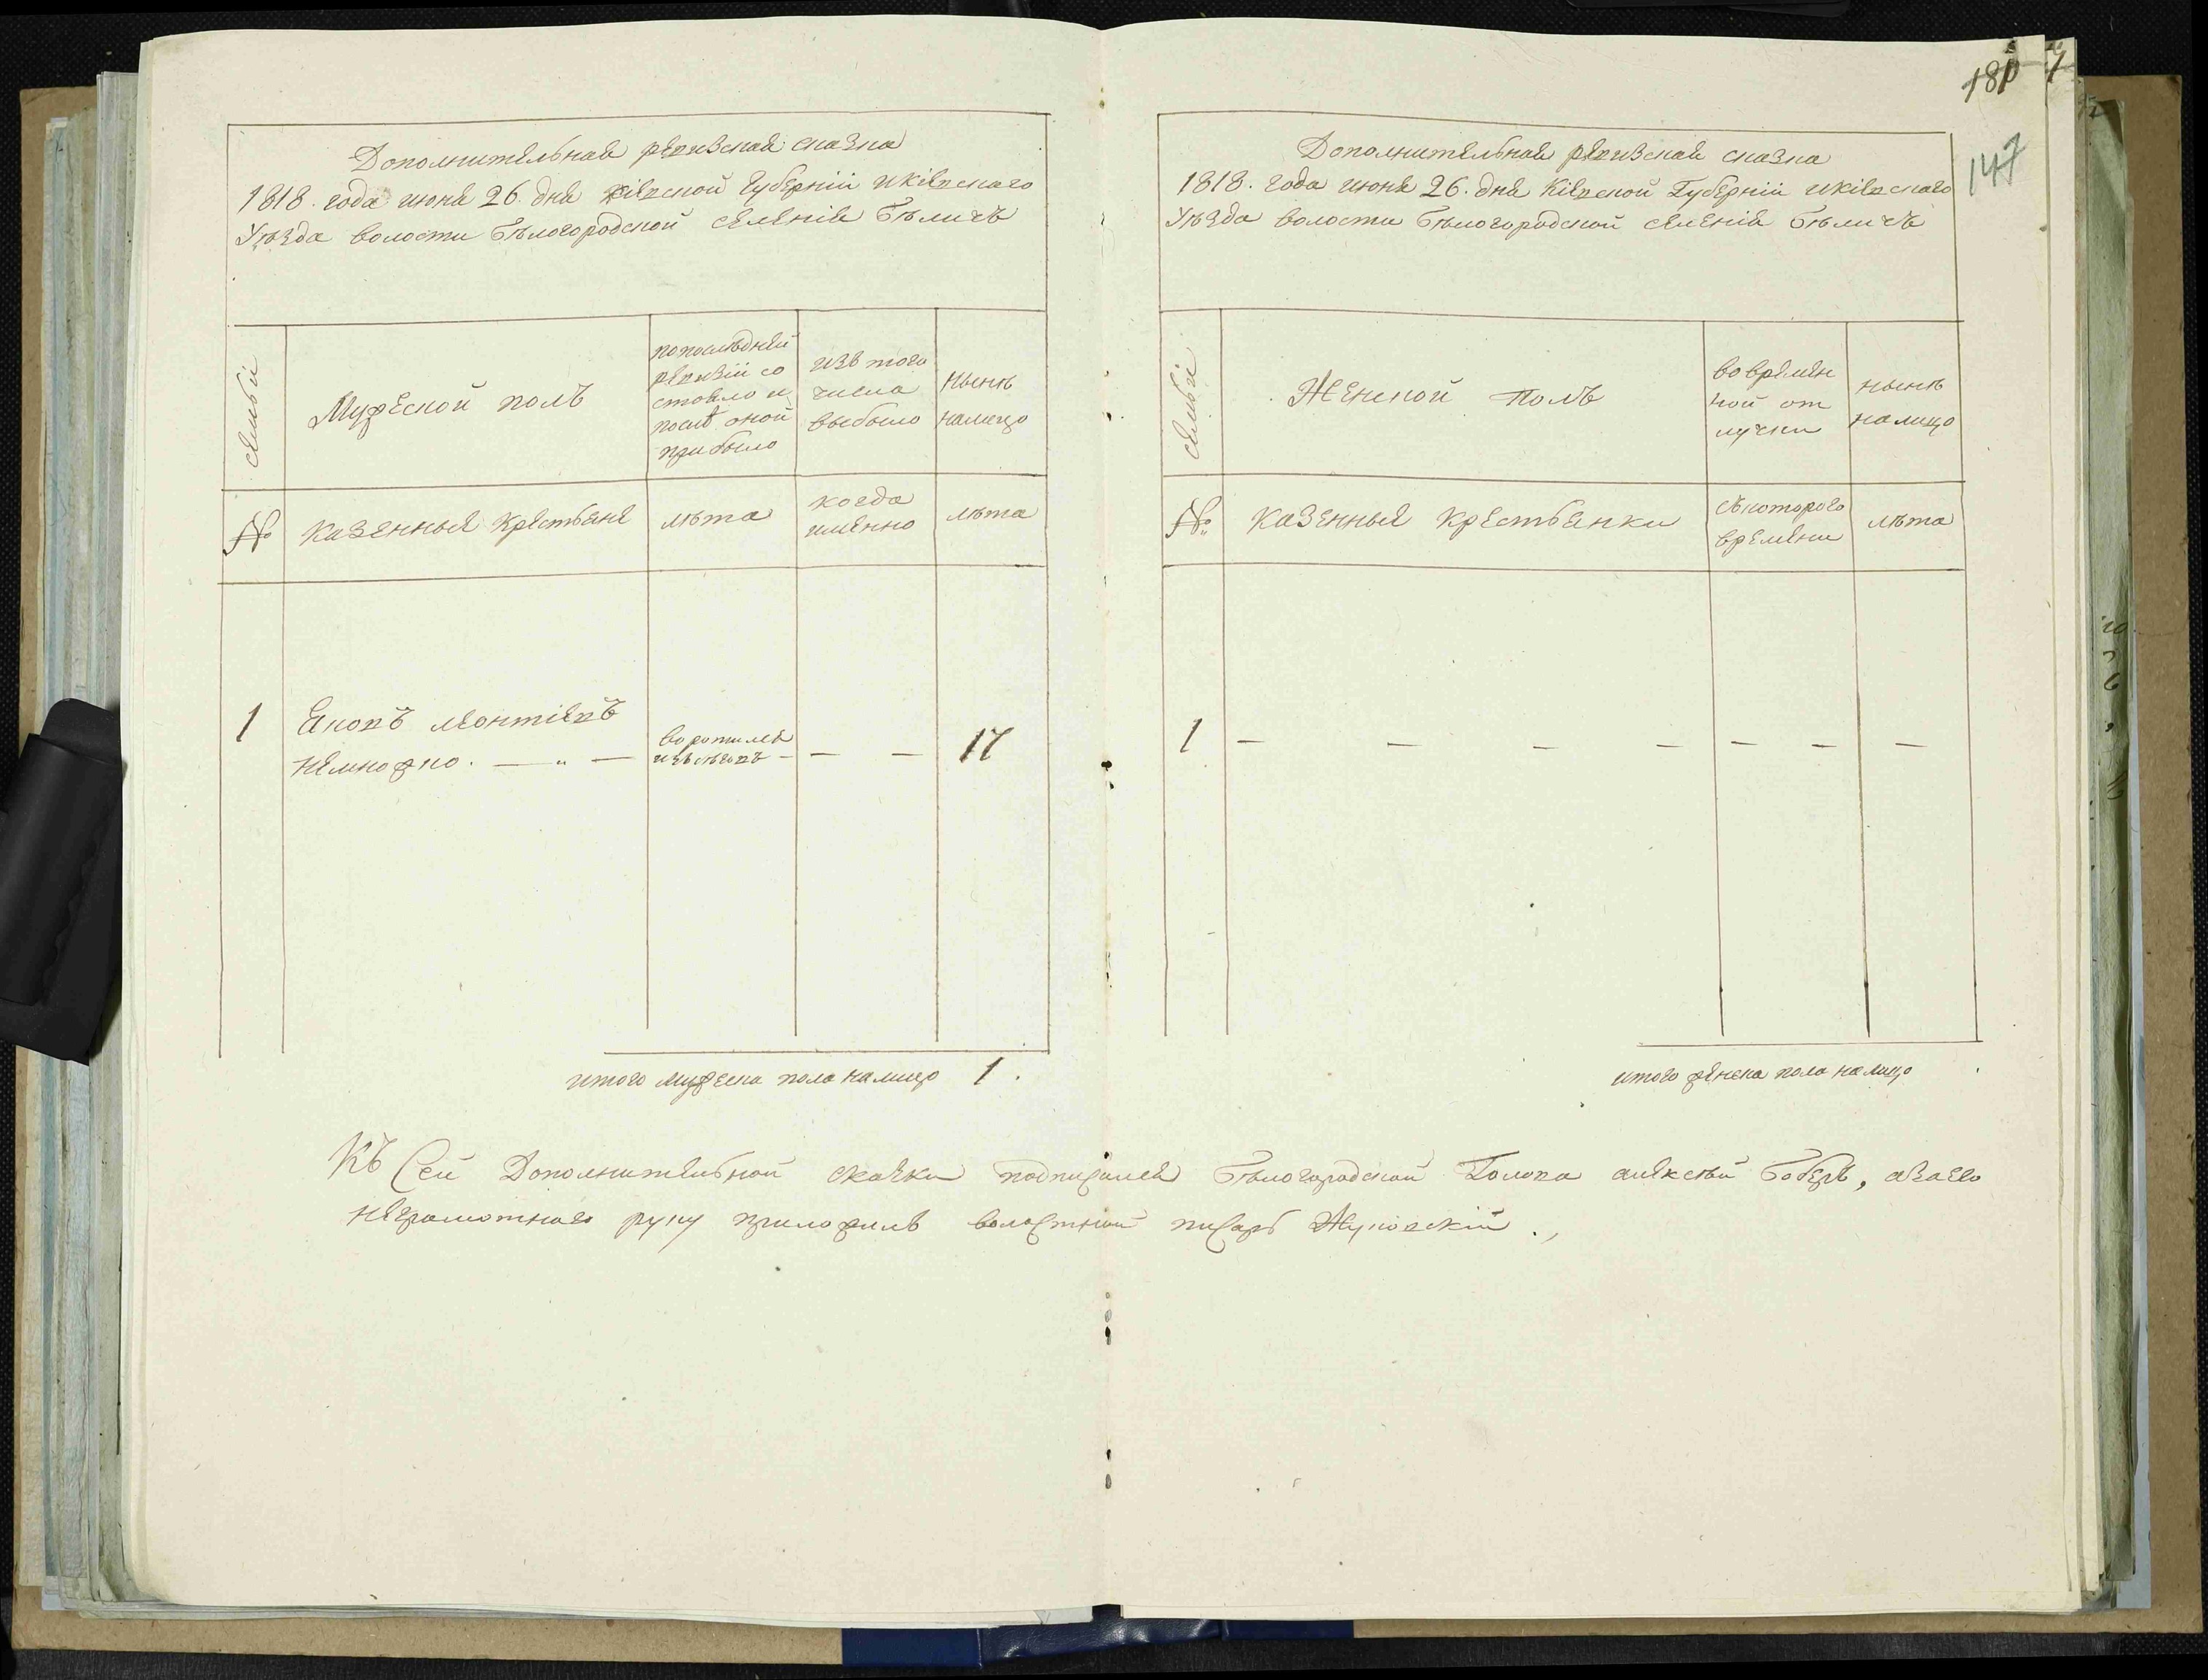 180
147
Дополнительная ревизская сказка
1818. года июня 26. дня Кіевской Губерніи и Кіевского
Уѣзда волости Бѣлогородской селенія Бѣличъ
семьи
Мужеской полъ
по последней
ревизіи со
стояло и
послѣ оной
прибыло
изъ того
числа
выбыло
нынѣ
налицо
№
Казенные Крестьяне
лѣта
когда
именно
лѣта
1
Яковъ Леонтіевъ
воротился
изъ бѣговъ
17
итого мужеска пола налицо 1.
Дополнительная ревизская сказка
1818. года июня 26. дня Кіевской Губерніи и Кіевского
Уѣзда волости Бѣлогородской селенія Бѣличъ
семьи
Женской полъ
во времен
ной от
лучки
нынѣ
налицо
№
Казенные Крестьянки
съ которого
времени
лѣта
1
итого женска пола налицо
Къ Сей Дополнительной сказки подписался Бѣлогородской Голова алексѣй Боберъ, а за его
неграмотного руку приложилъ волостной писарь Жуковскій.,